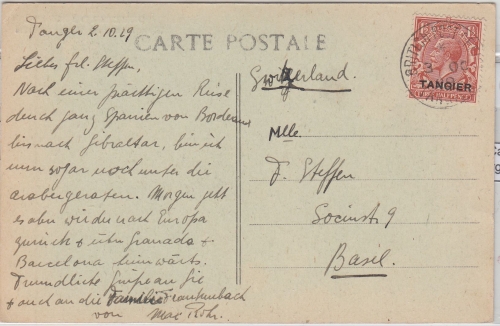 Tanger 2.10.29
CARTE POSTALE
Liebes Frl. Steffen,
Nach einer prächtigen Reise
durch ganz Spanien von Bordeaux
bis nach Gibraltar, bin ich
nun sogar noch unter die
Araber geraten. Morgen geht
es aber wieder nach Europa
zurück & über Granada &
Barcelona heimwärts.
Freundliche Grüsse an Sie
& auch an die Familie Frankenbach
von Max
Switzerland.
Mlle.
J. Steffen
Socinstr. 9
Basel.
TANGIER